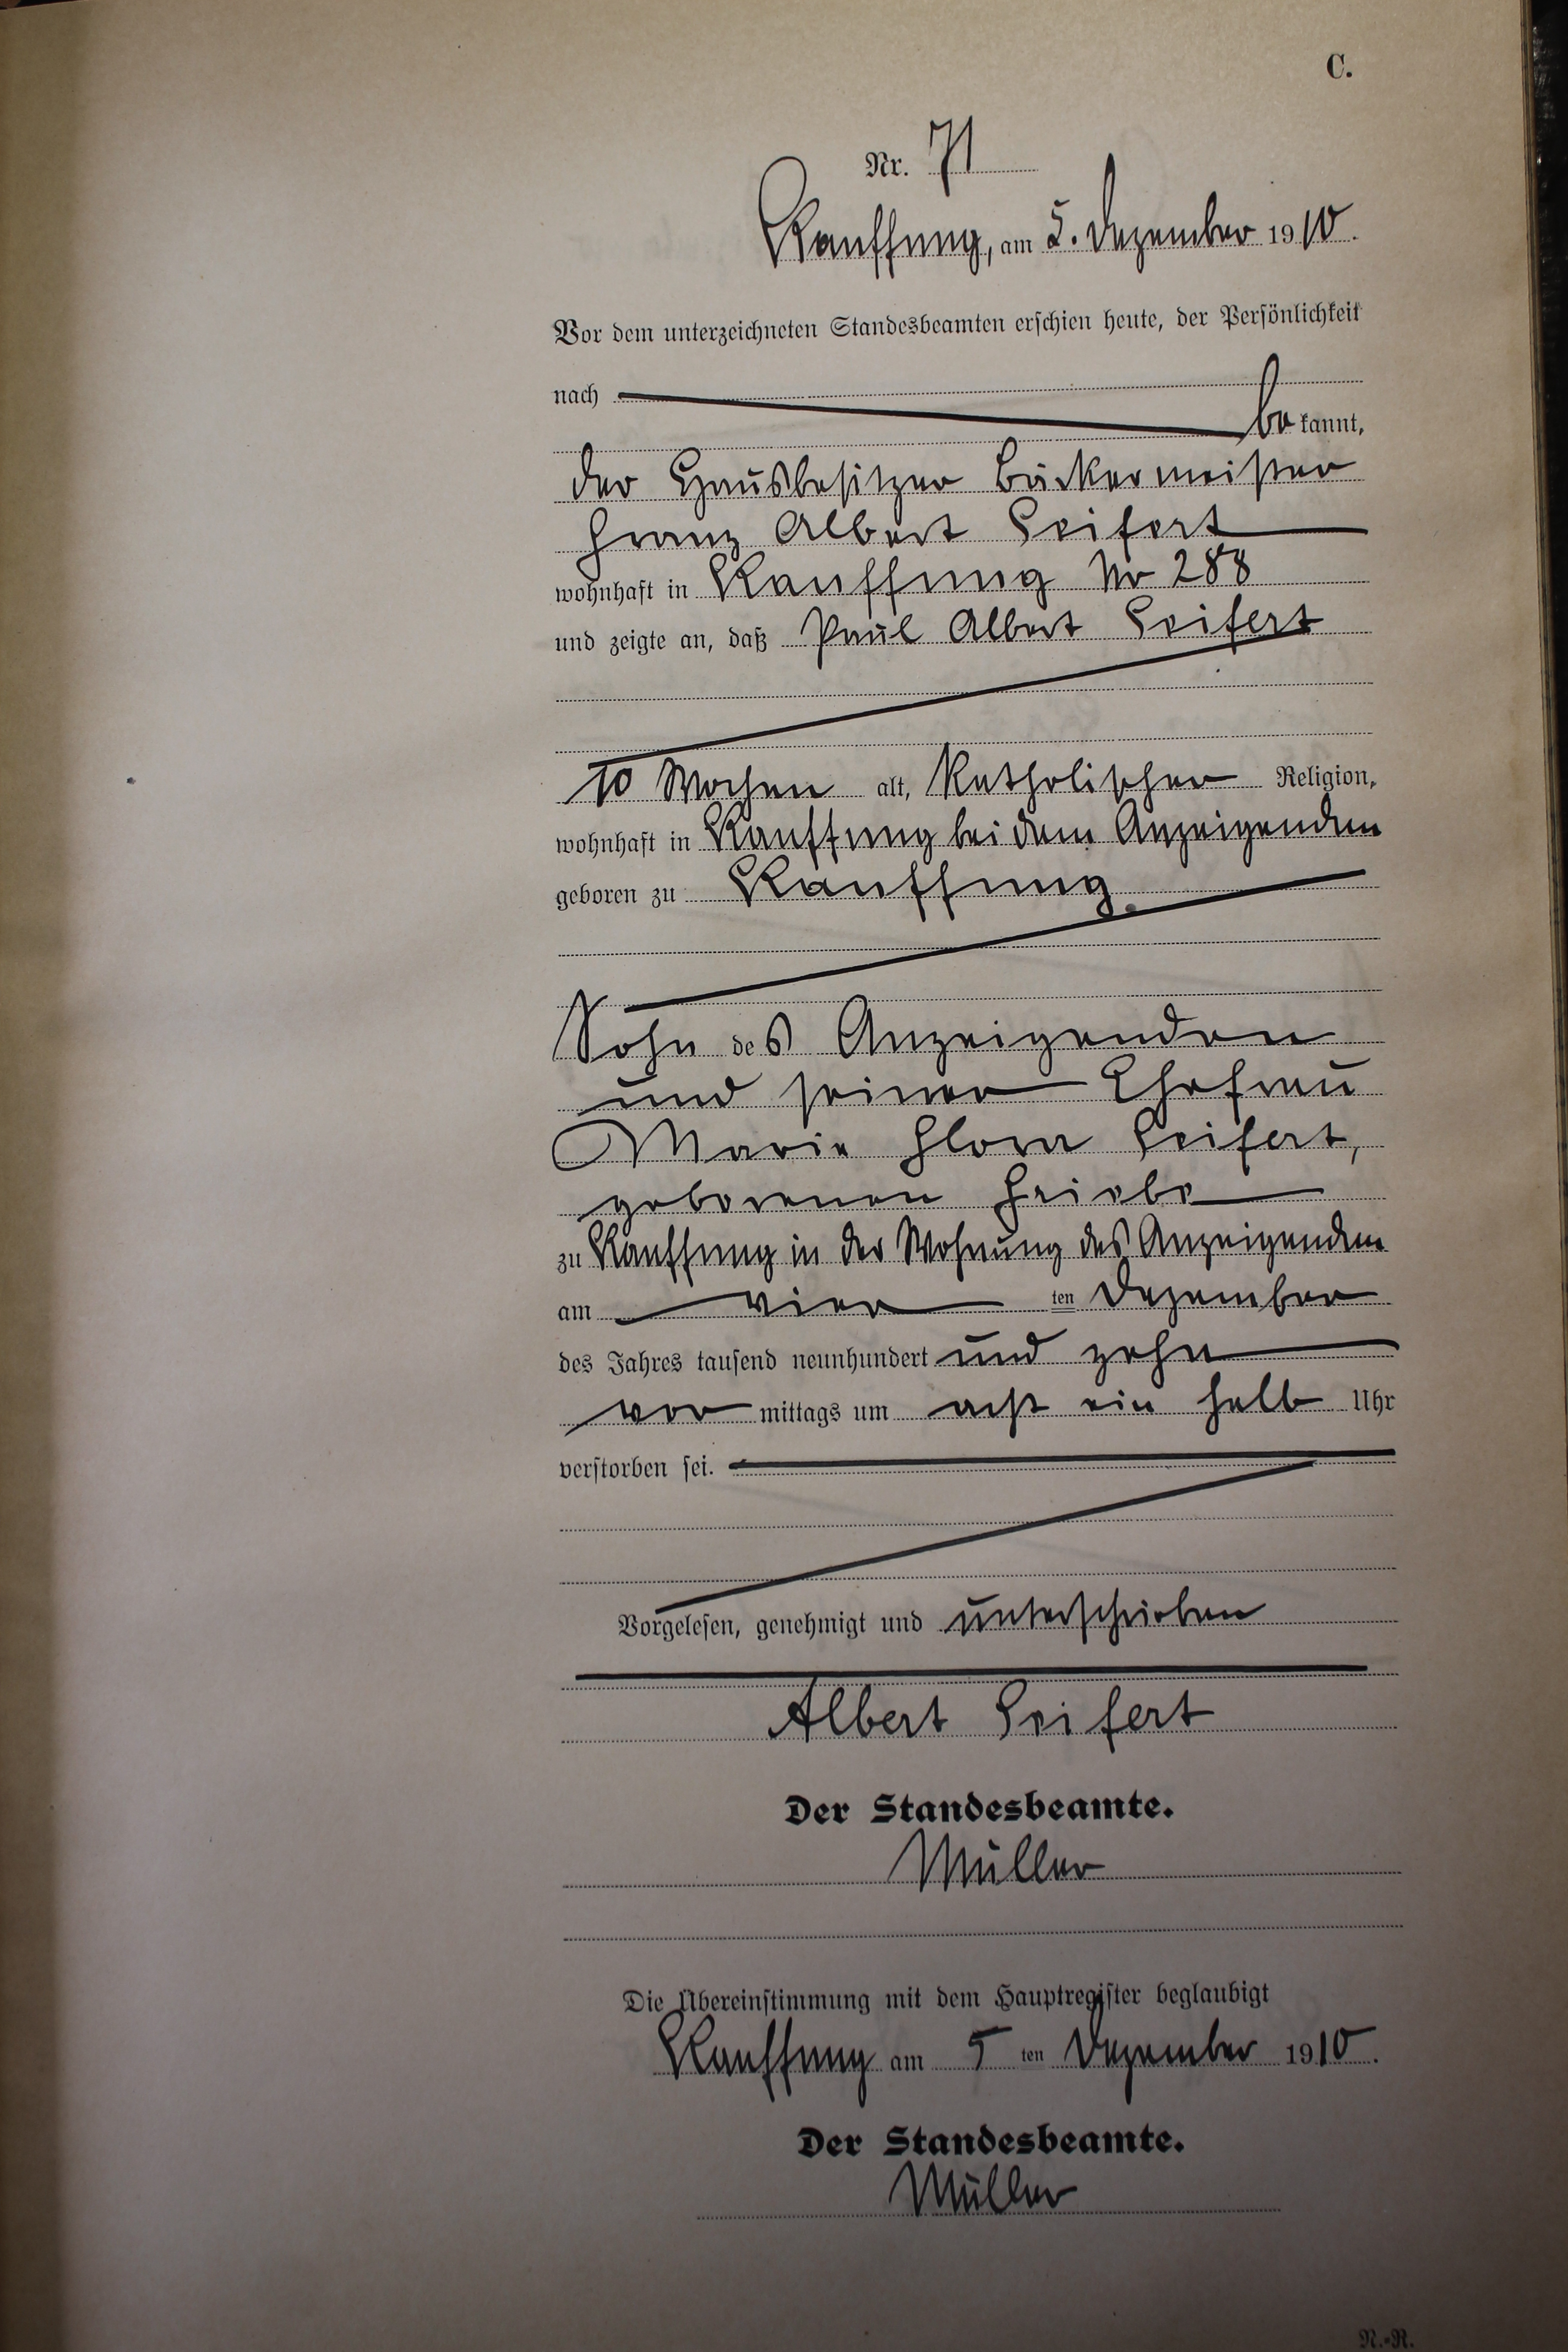 C.
Nr. 71
Kauffung, am 5. Dezember 1910.
Vor dem unterzeichneten Standesbeamten erschien heute, der Persönlichkeit
nach
be kannt,
der Hausbesitzer Bäckermeister
Franz Albert Seifert
wohnhaft in Kauffung Nr 288
und zeigte an, daß Paul Albert Seifert
10 Wochen alt, katholischer Religion,
wohnhaft in Kauffung bei dem Anzeigenden
geboren zu Kauffung.
Sohn des Anzeigenden
und seiner Ehefrau
Marie Flora Seifert,
geborenen Friebe
zu Kauffung in der Wohnung des Anzeigenden
am vier ten Dezember
des Jahres tausend neunhundert und zehn
vor mittags um acht ein halb Uhr
verstorben sei.
Vorgelesen, genehmigt und unterschrieben
Albert Seifert
Der Standesbeamte.
Müller
Die Übereinstimmung mit dem Hauptregister beglaubigt
Kauffung am 5 ten Dezember 1910.
Der Standesbeamte.
Müller
N.-R.